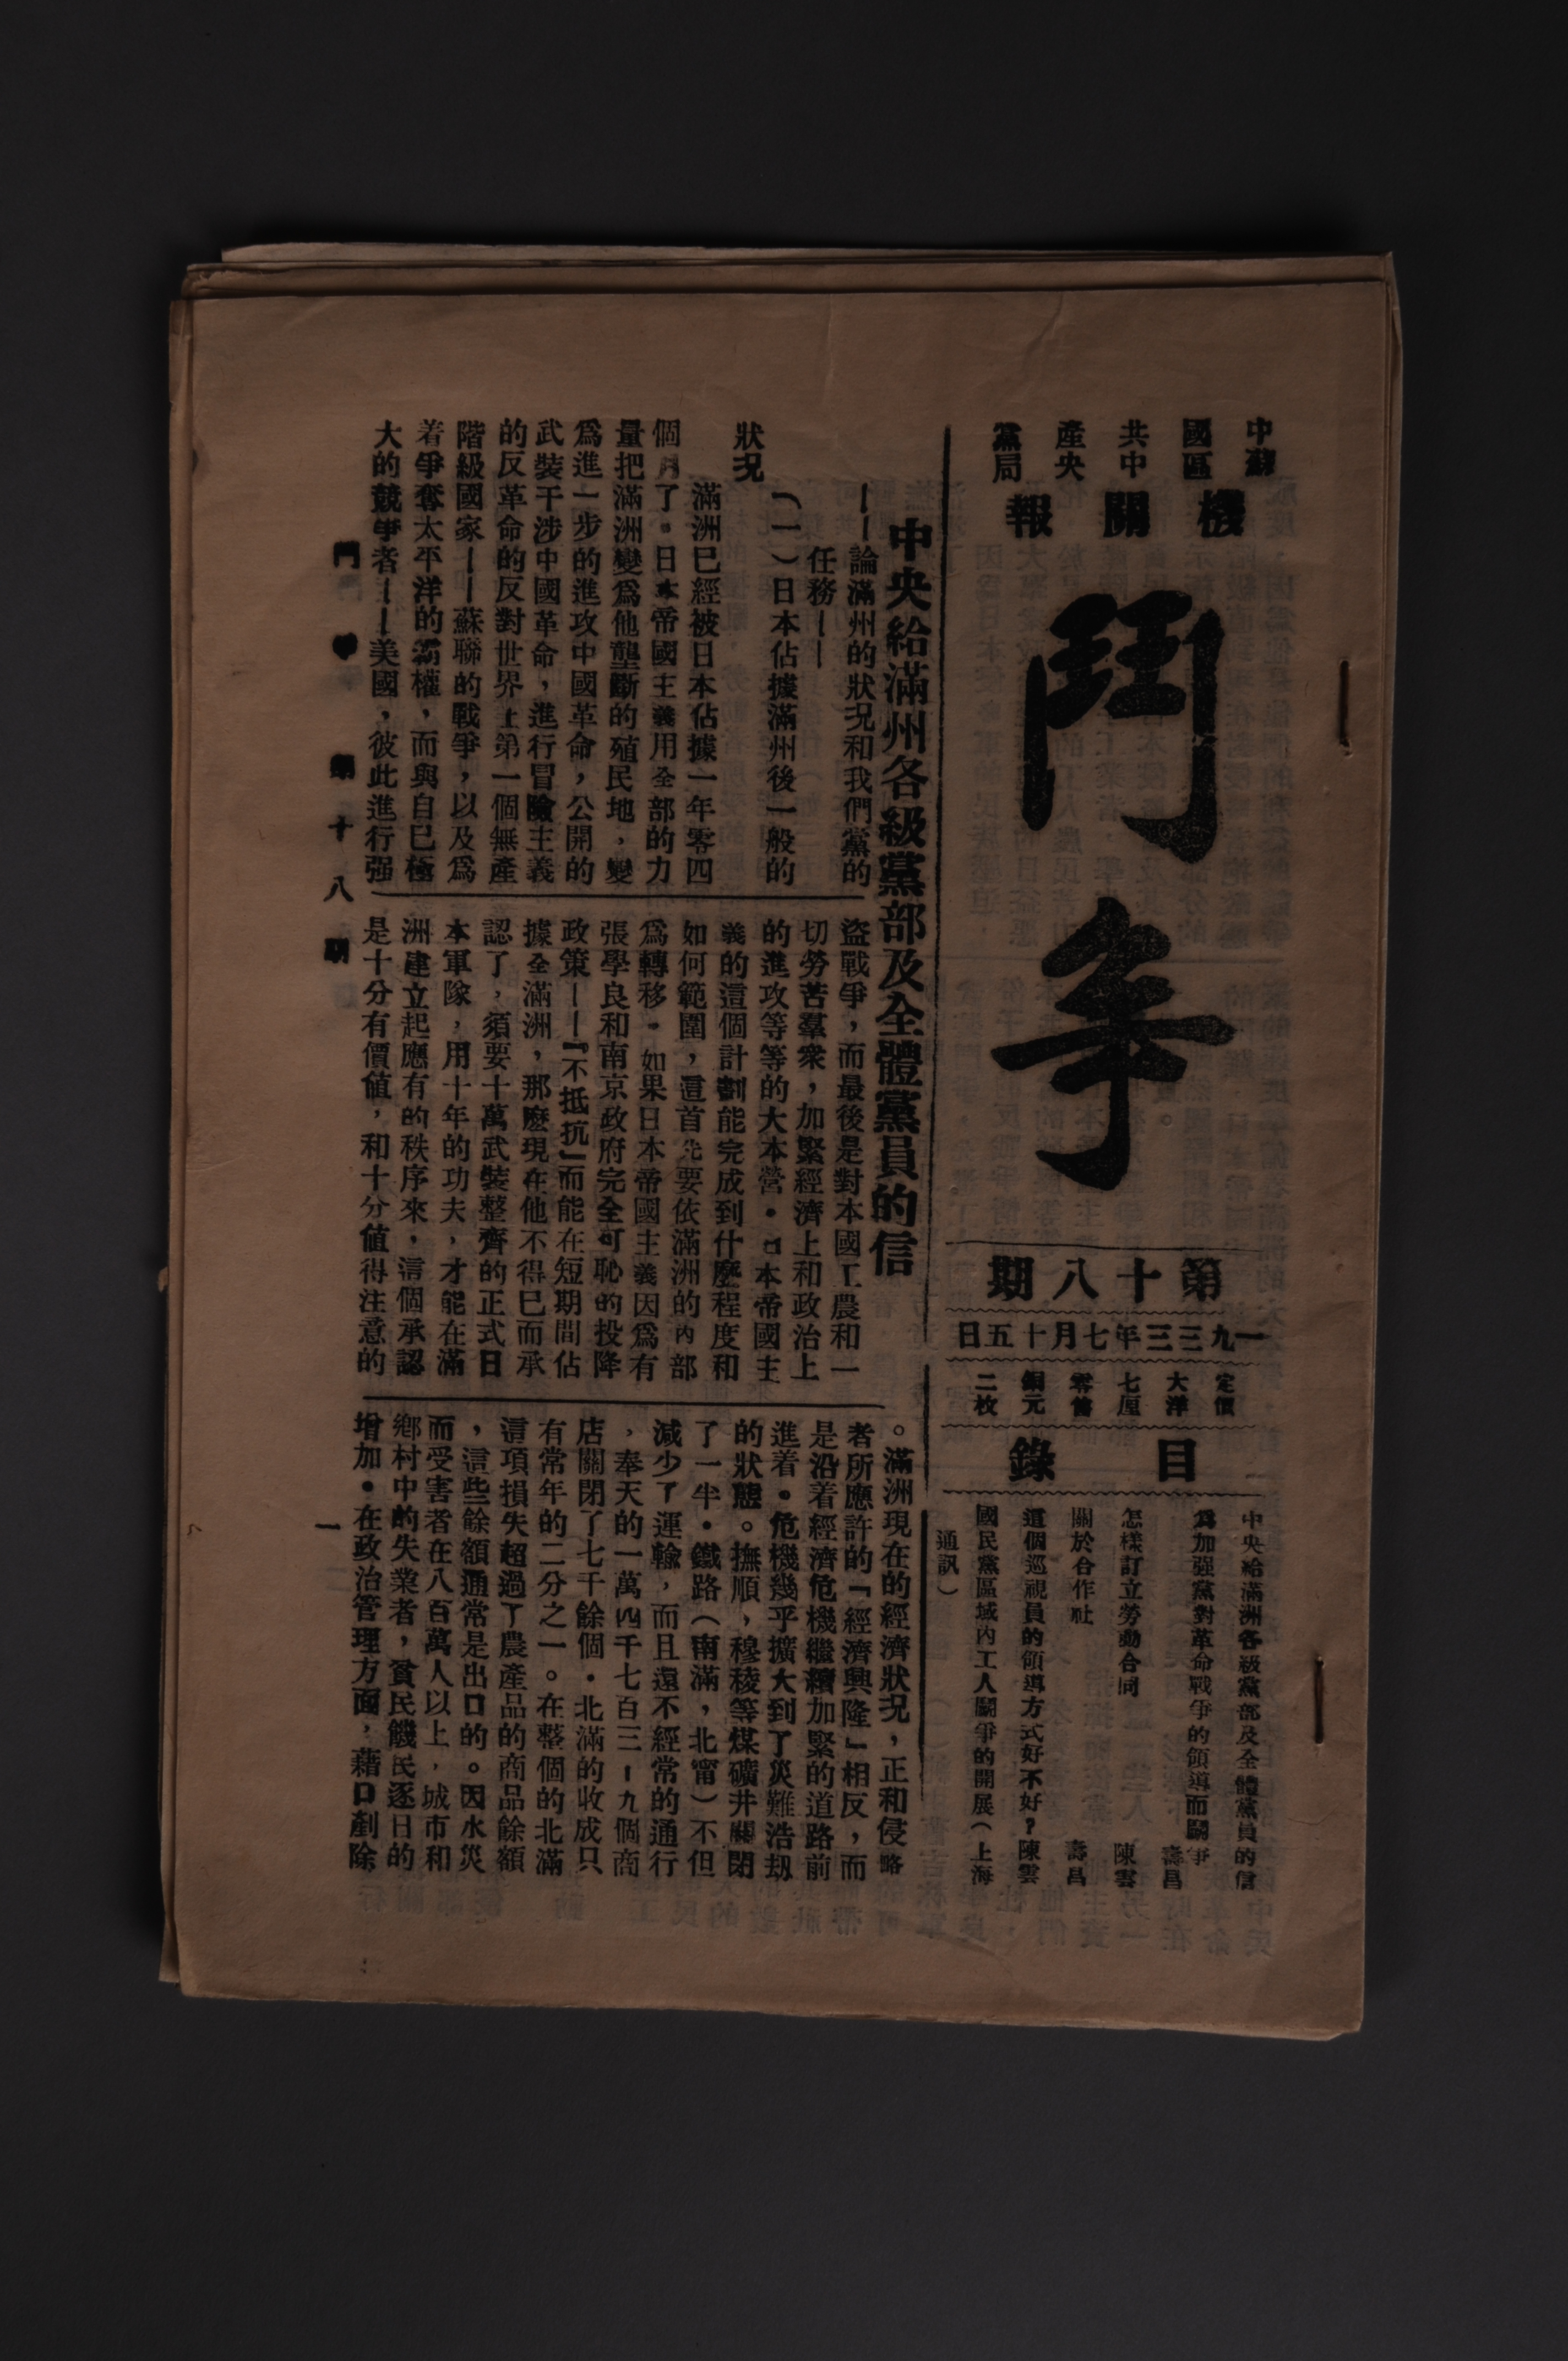 中國共產黨
蘇區中央局
機關報
鬥爭
第十八期
一九三三年七月十五日
定價大洋七厘零售銅元二枚
目錄
中央給滿洲各級黨部及全體黨員的信
為加强黨對革命戰爭的領導而鬭爭 壽昌
怎樣訂立勞動合同 陳雲
關於合作社 壽昌
這個巡視員的領導方式好不好？ 陳雲
國民黨區域內工人鬭爭的開展（上海
通訊）
中央給滿州各級黨部及全體黨員的信
——論滿州的狀况和我們黨的
任務——
（一）日本佔據滿州後一般的
狀况
滿洲已經被日本佔據一年零四
個月了。日本帝國主義用全部的力
量把滿洲變爲他壟斷的殖民地，變
爲進一步的進攻中國革命，公開的
武裝干涉中國革命，進行冒險主義
的反革命的反對世界上第一個無產
階級國家——蘇聯的戰爭，以及爲
着爭奪太平洋的霸權，而與自己極
大的競爭者——美國，彼此進行强
盜戰爭，而最後是對本國工農和一
切勞苦羣衆，加緊經濟上和政治上
的進攻等等的大本營。日本帝國主
義的這個計劃能完成到什麼程度和
如何範圍，這首先要依滿洲的內部
爲轉移。如果日本帝國主義因爲有
張學良和南京政府完全可恥的投降
政策——『不抵抗』而能在短期間佔
據全滿洲，那麼現在他不得已而承
認了，須要十萬武裝整齊的正式日
本軍隊，用十年的功夫，才能在滿
洲建立起應有的秩序來，這個承認
是十分有價值，和十分值得注意的
。滿洲現在的經濟狀况，正和侵略
者所應許的「經濟興隆」相反，而
是沿着經濟危機繼續加緊的道路前
進着。危機幾乎擴大到了災難浩刼
的狀態。撫順，穆稜等煤礦井關閉
了一半。鐵路（南滿，北甯）不但
減少了運輸，而且還不經常的通行
，奉天的一萬四千七百三一九個商
店關閉了七千餘個。北滿的收成只
有常年的二分之一。在整個的北滿
這項損失超過了農產品的商品餘額
，這些餘額通常是出口的。因水災
而受害者在八百萬人以上，城市和
鄉村中的失業者，貧民饑民逐日的
增加。在政治管理方面，藉口剷除
鬥爭 第十八期
一